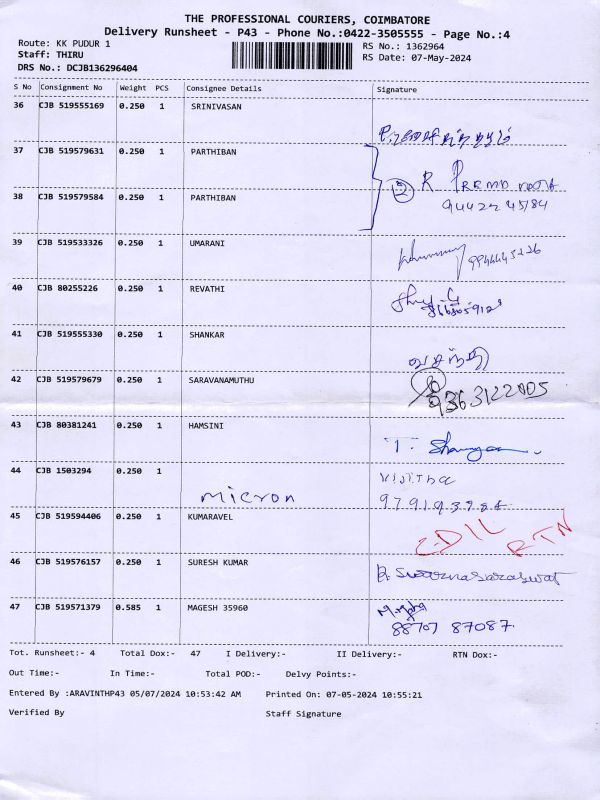 THE PROFESSIONAL COURIERS, COIMBATORE
Delivery Runsheet - P43 - Phone No.:0422-3505555 - Page No.:4
Route: KK PUDUR 1
RS No.: 1362964
Staff: THIRU
RS Date: 07-May-2024
DRS No.: DCJB136296404
S No Consignment No Weight PCS Consignee Details Signature
36 CJB 519555169 0.250 1 SRINIVASAN
37 CJB 519579631 0.250 1 PARTHIBAN
38 CJB 519579584 0.250 1 PARTHIBAN
39 CJB 519533326 0.250 1 UMARANI
40 CJB 80255226 0.250 1 REVATHI
41 CJB 519555330 0.250 1 SHANKAR
வசந்தி
42 CJB 519579679 0.250 1 SARAVANAMUTHU
9363122005
43 CJB 80381241 0.250 1 HAMSINI
44 CJB 1503294 0.250 1
micron
45 CJB 519594406 0.250 1 KUMARAVEL
RTN
46 CJB 519576157 0.250 1 SURESH KUMAR
47 CJB 519571379 0.585 1 MAGESH 35960
88707 87087
Tot. Runsheet:- 4 Total Dox:- 47 I Delivery:- II Delivery:- RTN Dox:-
Out Time:- In Time:- Total POD:- Delvy Points:-
Entered By :ARAVINTHP43 05/07/2024 10:53:42 AM Printed On: 07-05-2024 10:55:21
Verified By Staff Signature